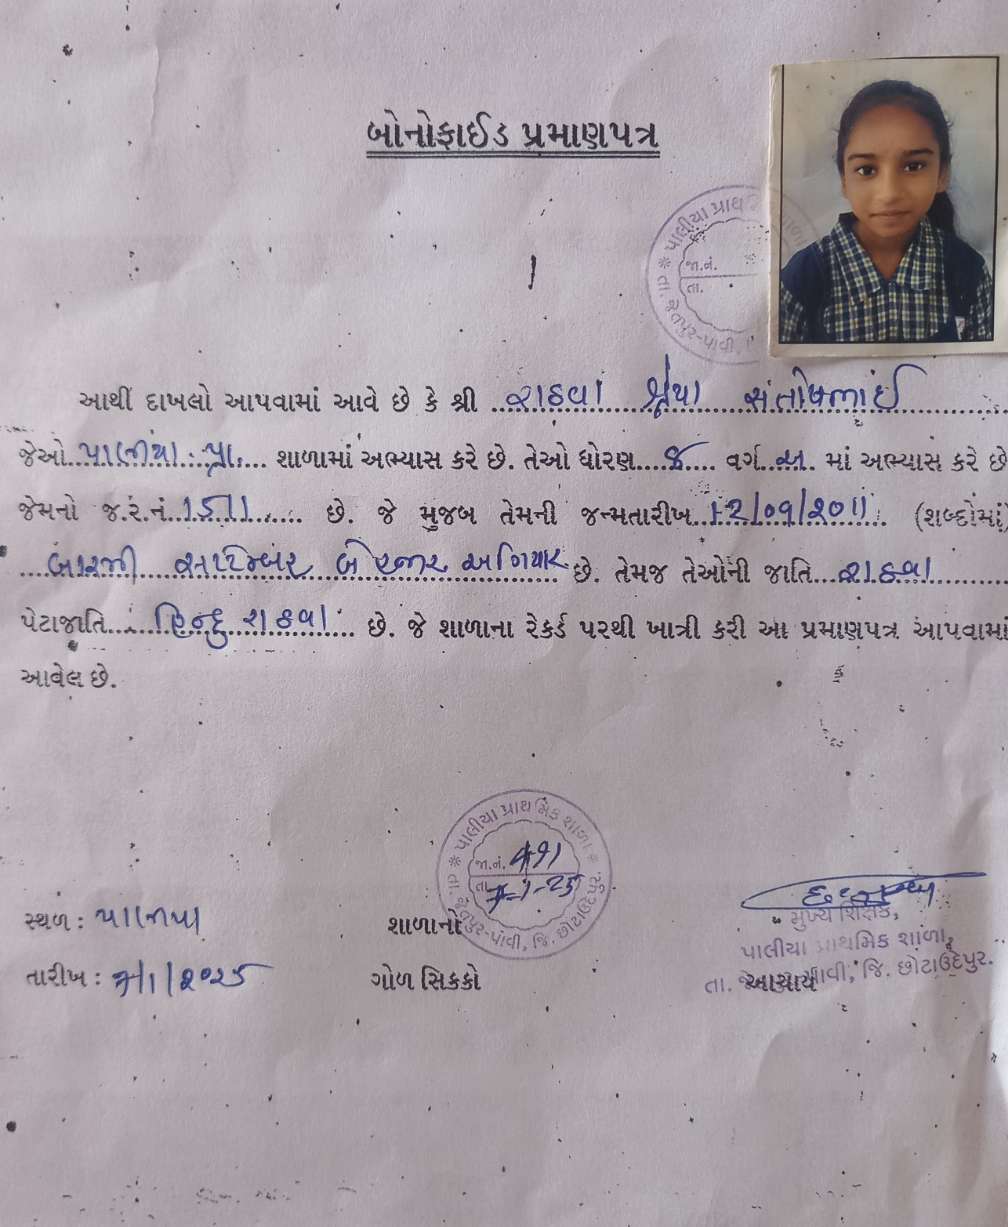 બોનોફાઈડ પ્રમાણપત્ર
પાલીયા પ્રાથમિ શાળા
જા.નં.
તા.
તા. જેતપુર-પાવી,
આથી દાખલો આપવામાં આવે છે કે શ્રી રાઠવા શ્રેયા સંતોષભાઈ
જેઓ પાલીયા પ્રા. શાળામાં અભ્યાસ કરે છે. તેઓ ધોરણ ૭ વર્ગ અ માં અભ્યાસ કરે છે
જેમનો જ.ર.નં. 1511 છે. જે મુજબ તેમની જન્મતારીખ 12/09/2011 (શબ્દોમાં)
બારમી સપ્ટેમ્બર બે હજાર અગિયાર છે. તેમજ તેઓની જાતિ રાઠવા
પેટાજાતિ હિન્દુ રાઠવા છે. જે શાળાના રેકર્ડ પરથી ખાત્રી કરી આ પ્રમાણપત્ર આપવામાં
આવેલ છે.
પાલીયા પ્રાથમિક શાળા
જા.નં.
તા.
તા. જેતપુર-પાવી, જિ. છોટાઉદેપુર.
સ્થળ : પાલીયા
શાળાનો
મુખ્ય શિક્ષક,
પાલીયા પ્રાથમિક શાળા,
તારીખ : ૭/1/૨૦૨૫
ગોળ સિકકો
તા. પાવી, જિ. છોટાઉદેપુર.
આચાર્ય